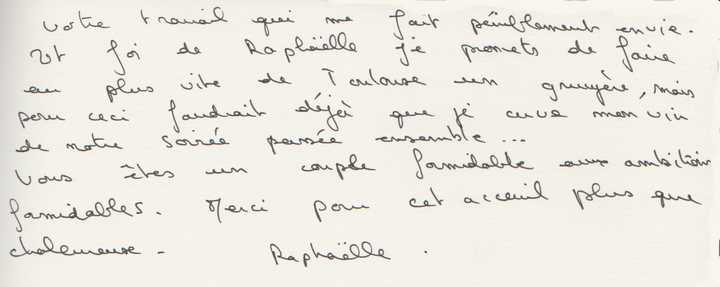 votre travail qui me fait péniblement envie.
Et foi de Raphaëlle je promets de faire
au plus vite de Toulouse un gruyère, mais
pour ceci faudrait déjà que je cuve mon vin
de notre soirée passée ensemble...
Vous êtes un couple formidable aux ambitions
formidables. Merci pour cet acceuil plus que
chaleureuse -
Raphaëlle.